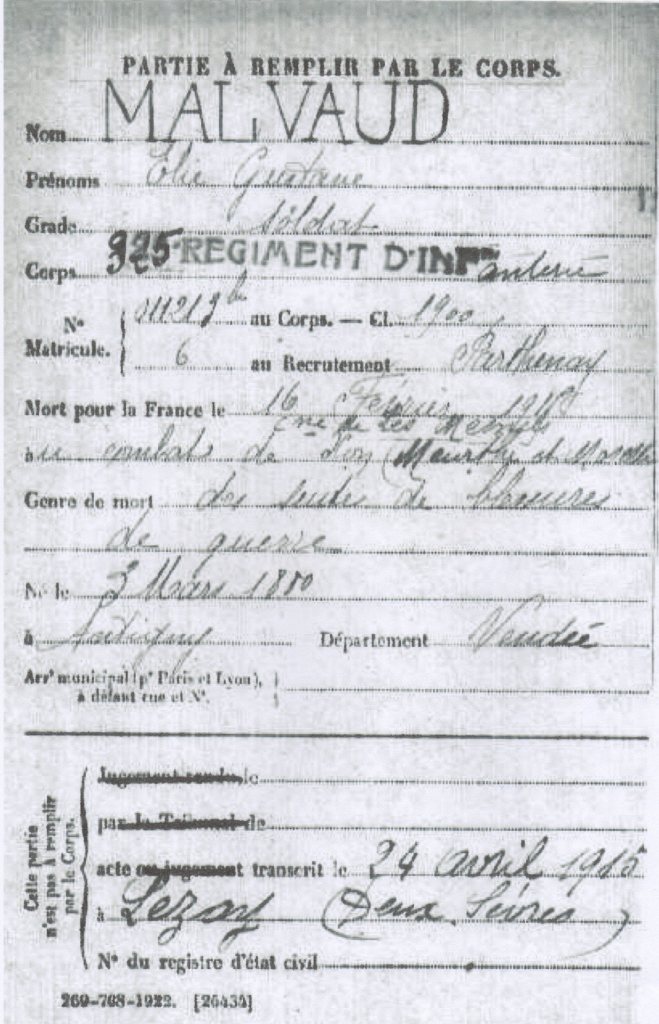 PARTIE À REMPLIR PAR LE CORPS.
Nom MALVAUD
Prénoms Elie Gustave
Grade Soldat
Corps 325 REGIMENT D'INFanterie
N° Matricule. 011213 au Corps. — Cl. 1900
6 au Recrutement Parthenay
Mort pour la France le 16 Février 1915
Cne de Les Mesnils
au combat de (Meurthe et Moselle
Genre de mort des suites de blessures
de guerre
Né le 3 Mars 1880
à Antigny Département Vendée
Arrt municipal (pr Paris et Lyon),
à défaut rue et N°.
Cette partie n'est pas à remplir par le Corps.
Jugement rendu le
par le Tribunal de
acte ou jugement transcrit le 24 avril 1915
à Lezay (Deux Sèvres)
N° du registre d'état civil
269-708-1922. [26434]